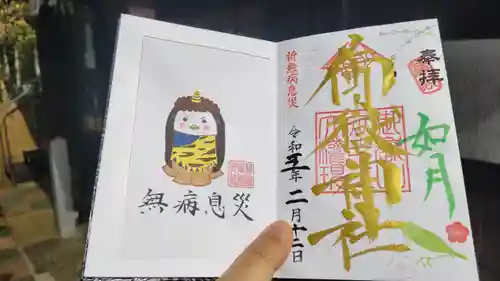 奉拝
如月
御嶽山社
祈愈病息災
令和五年 二月十二日
無病息災